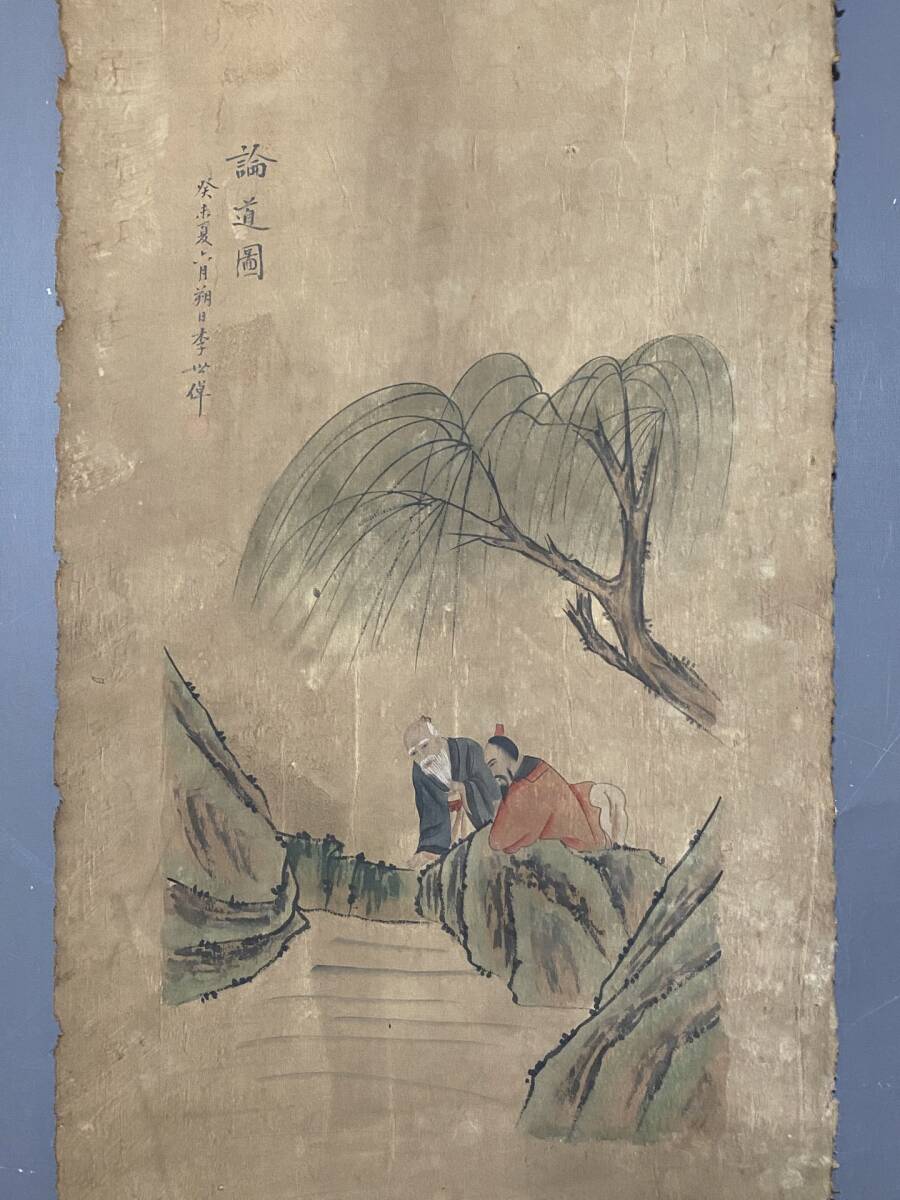 論道圖
癸未夏六月朔日李世倬